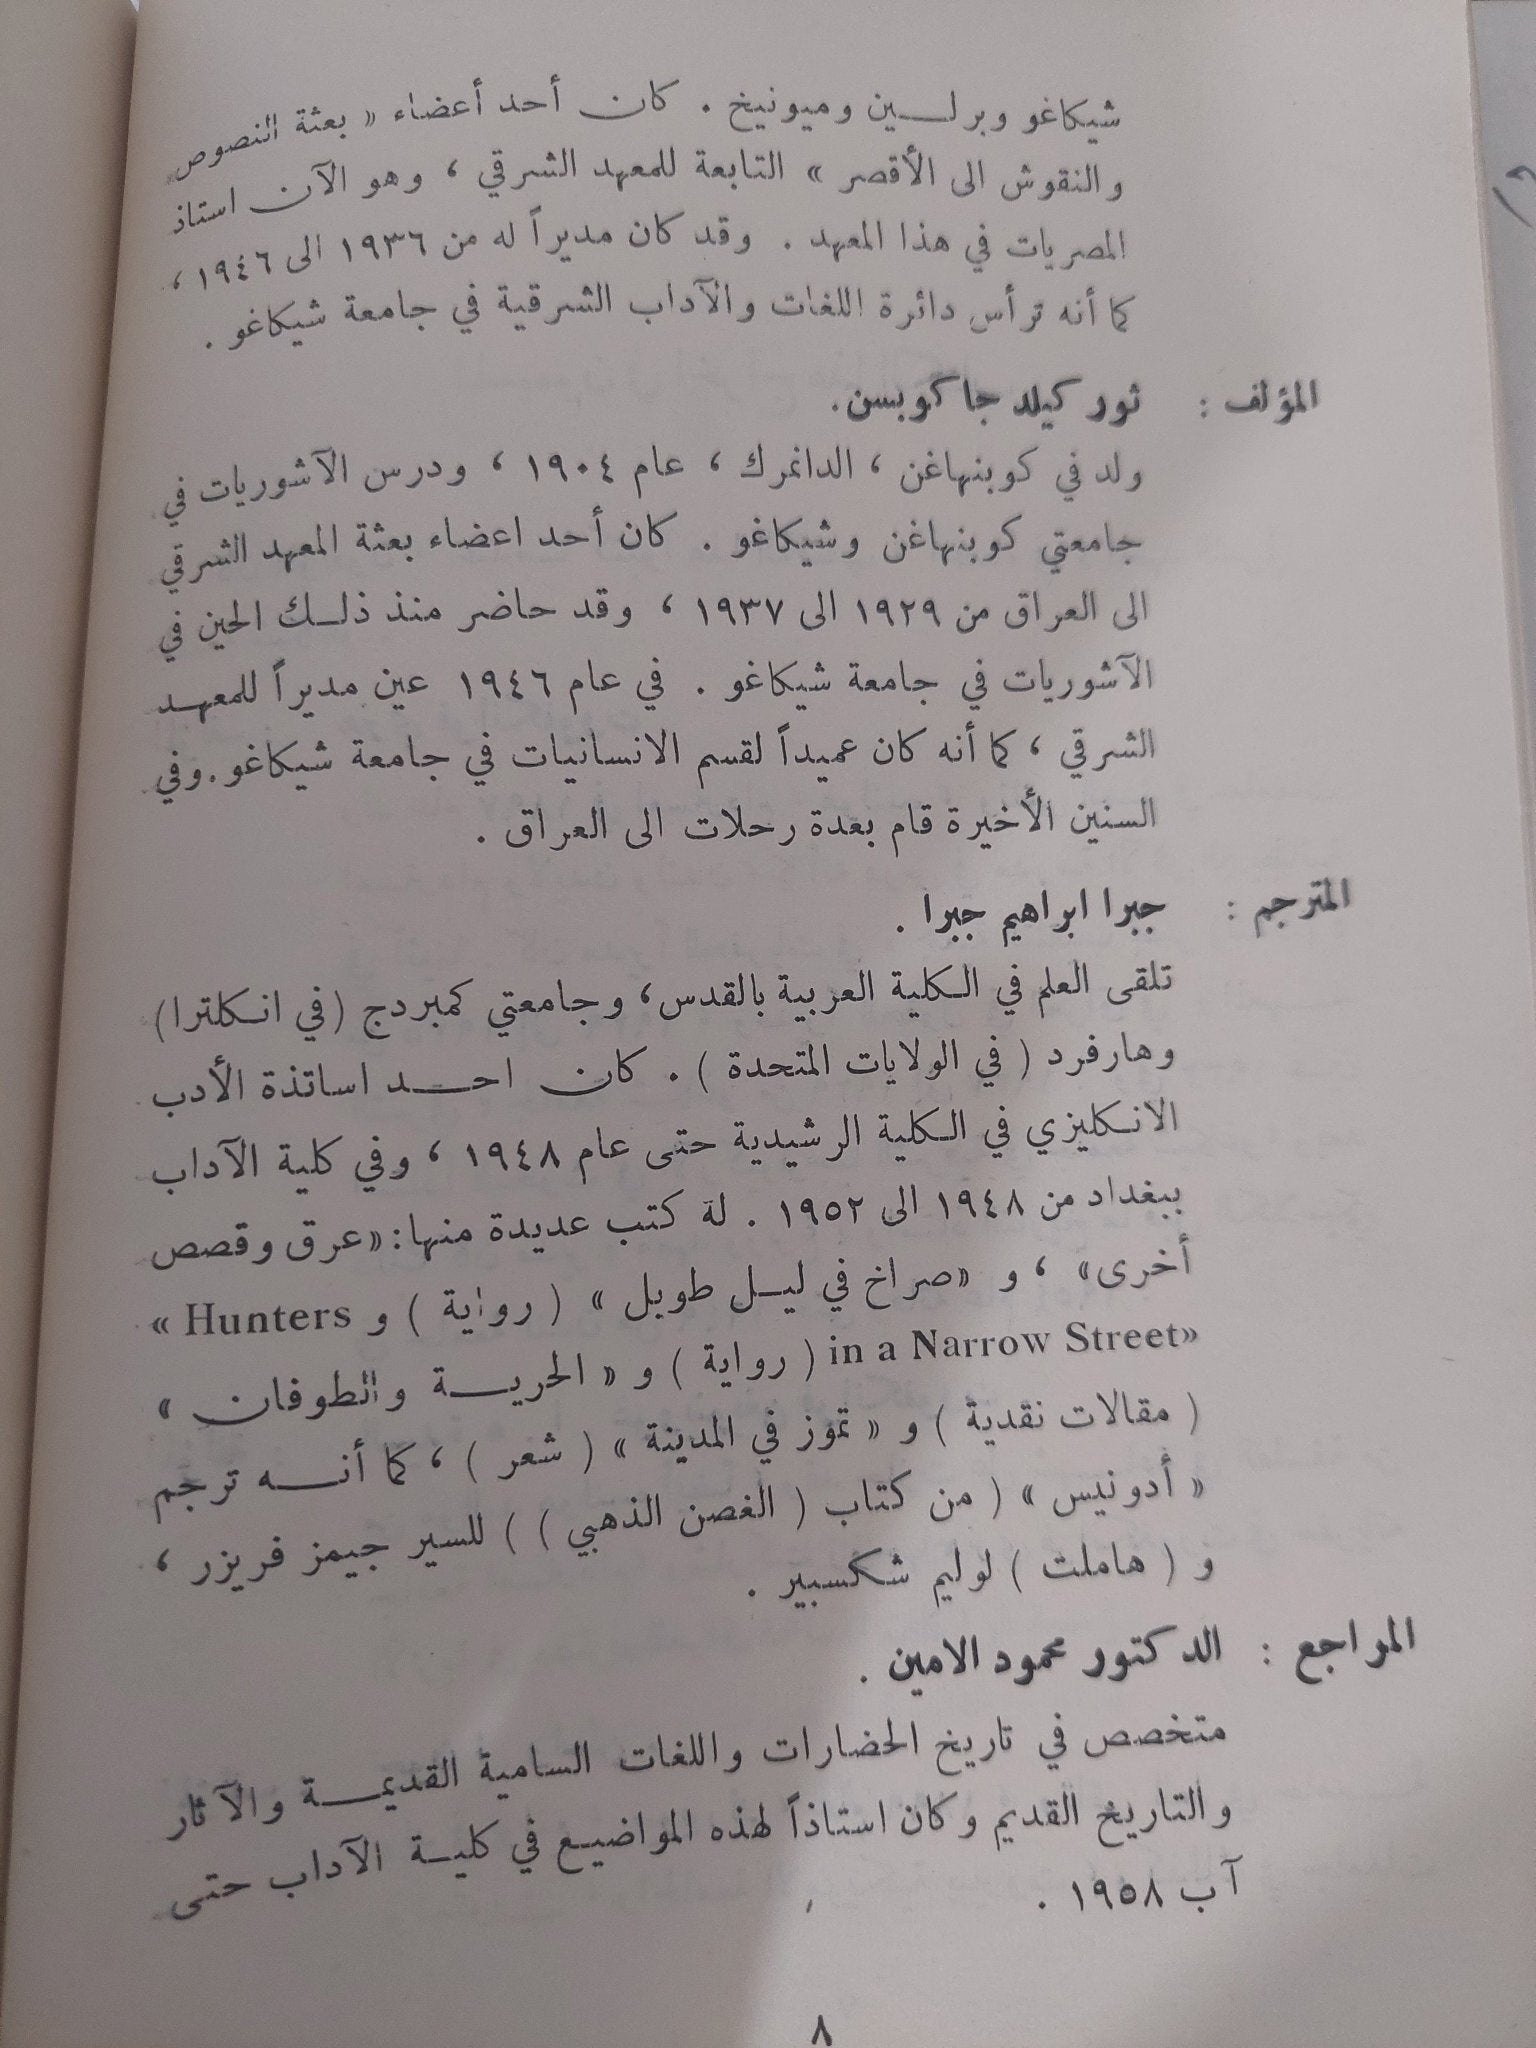 شيكاغو وبرلين وميونيخ . كان أحد أعضاء « بعثة النصوص
والنقوش الى الأقصر » التابعة للمعهد الشرقي ، وهو الآن استاذ
المصريات في هذا المعهد . وقد كان مديراً له من ١٩٣٦ الى ١٩٤٦ ،
كما أنه ترأس دائرة اللغات والآداب الشرقية في جامعة شيكاغو .
المؤلف : ثوركيلد جاكوبسن.
ولد في كوبنهاغن ، الدانمرك ، عام ١٩٠٤ ، ودرس الآشوريات في
جامعتي كوبنهاغن وشيكاغو . كان أحد اعضاء بعثة المعهد الشرقي
الى العراق من ١٩٢٩ الى ١٩٣٧ ، وقد حاضر منذ ذلك الحين في
الآشوريات في جامعة شيكاغو . في عام ١٩٤٦ عين مديراً للمعهد
الشرقي ، كما أنه كان عميداً لقسم الانسانيات في جامعة شيكاغو.وفي
السنين الأخيرة قام بعدة رحلات الى العراق .
المترجم : جبرا ابراهيم جبرا .
تلقى العلم في الكلية العربية بالقدس، وجامعتي كمبردج (في انكلترا)
وهارفرد ( في الولايات المتحدة ) . كان احد اساتذة الأدب
الانكليزي في الكلية الرشيدية حتى عام ١٩٤٨ ، وفي كلية الآداب
ببغداد من ١٩٤٨ الى ١٩٥٢ . لة كتب عديدة منها: «عرق وقصص
أخرى» ، و «صراخ في ليل طويل » ( رواية ) و Hunters »
«in a Narrow Street ( رواية ) و « الحرية والطوفان »
( مقالات نقدية ) و « تموز في المدينة » ( شعر ) ، كما أنه ترجم
« أدونيس » ( من كتاب ( الغصن الذهبي ) ) للسير جيمز فريزر ،
و ( هاملت ) لوليم شكسبير .
المراجع : الدكتور محمود الامين .
متخصص في تاريخ الحضارات واللغات السامية القديمة والآثار
والتاريخ القديم وكان استاذاً لهذه المواضيع في كلية الآداب حتى
آب ١٩٥٨ .
٨